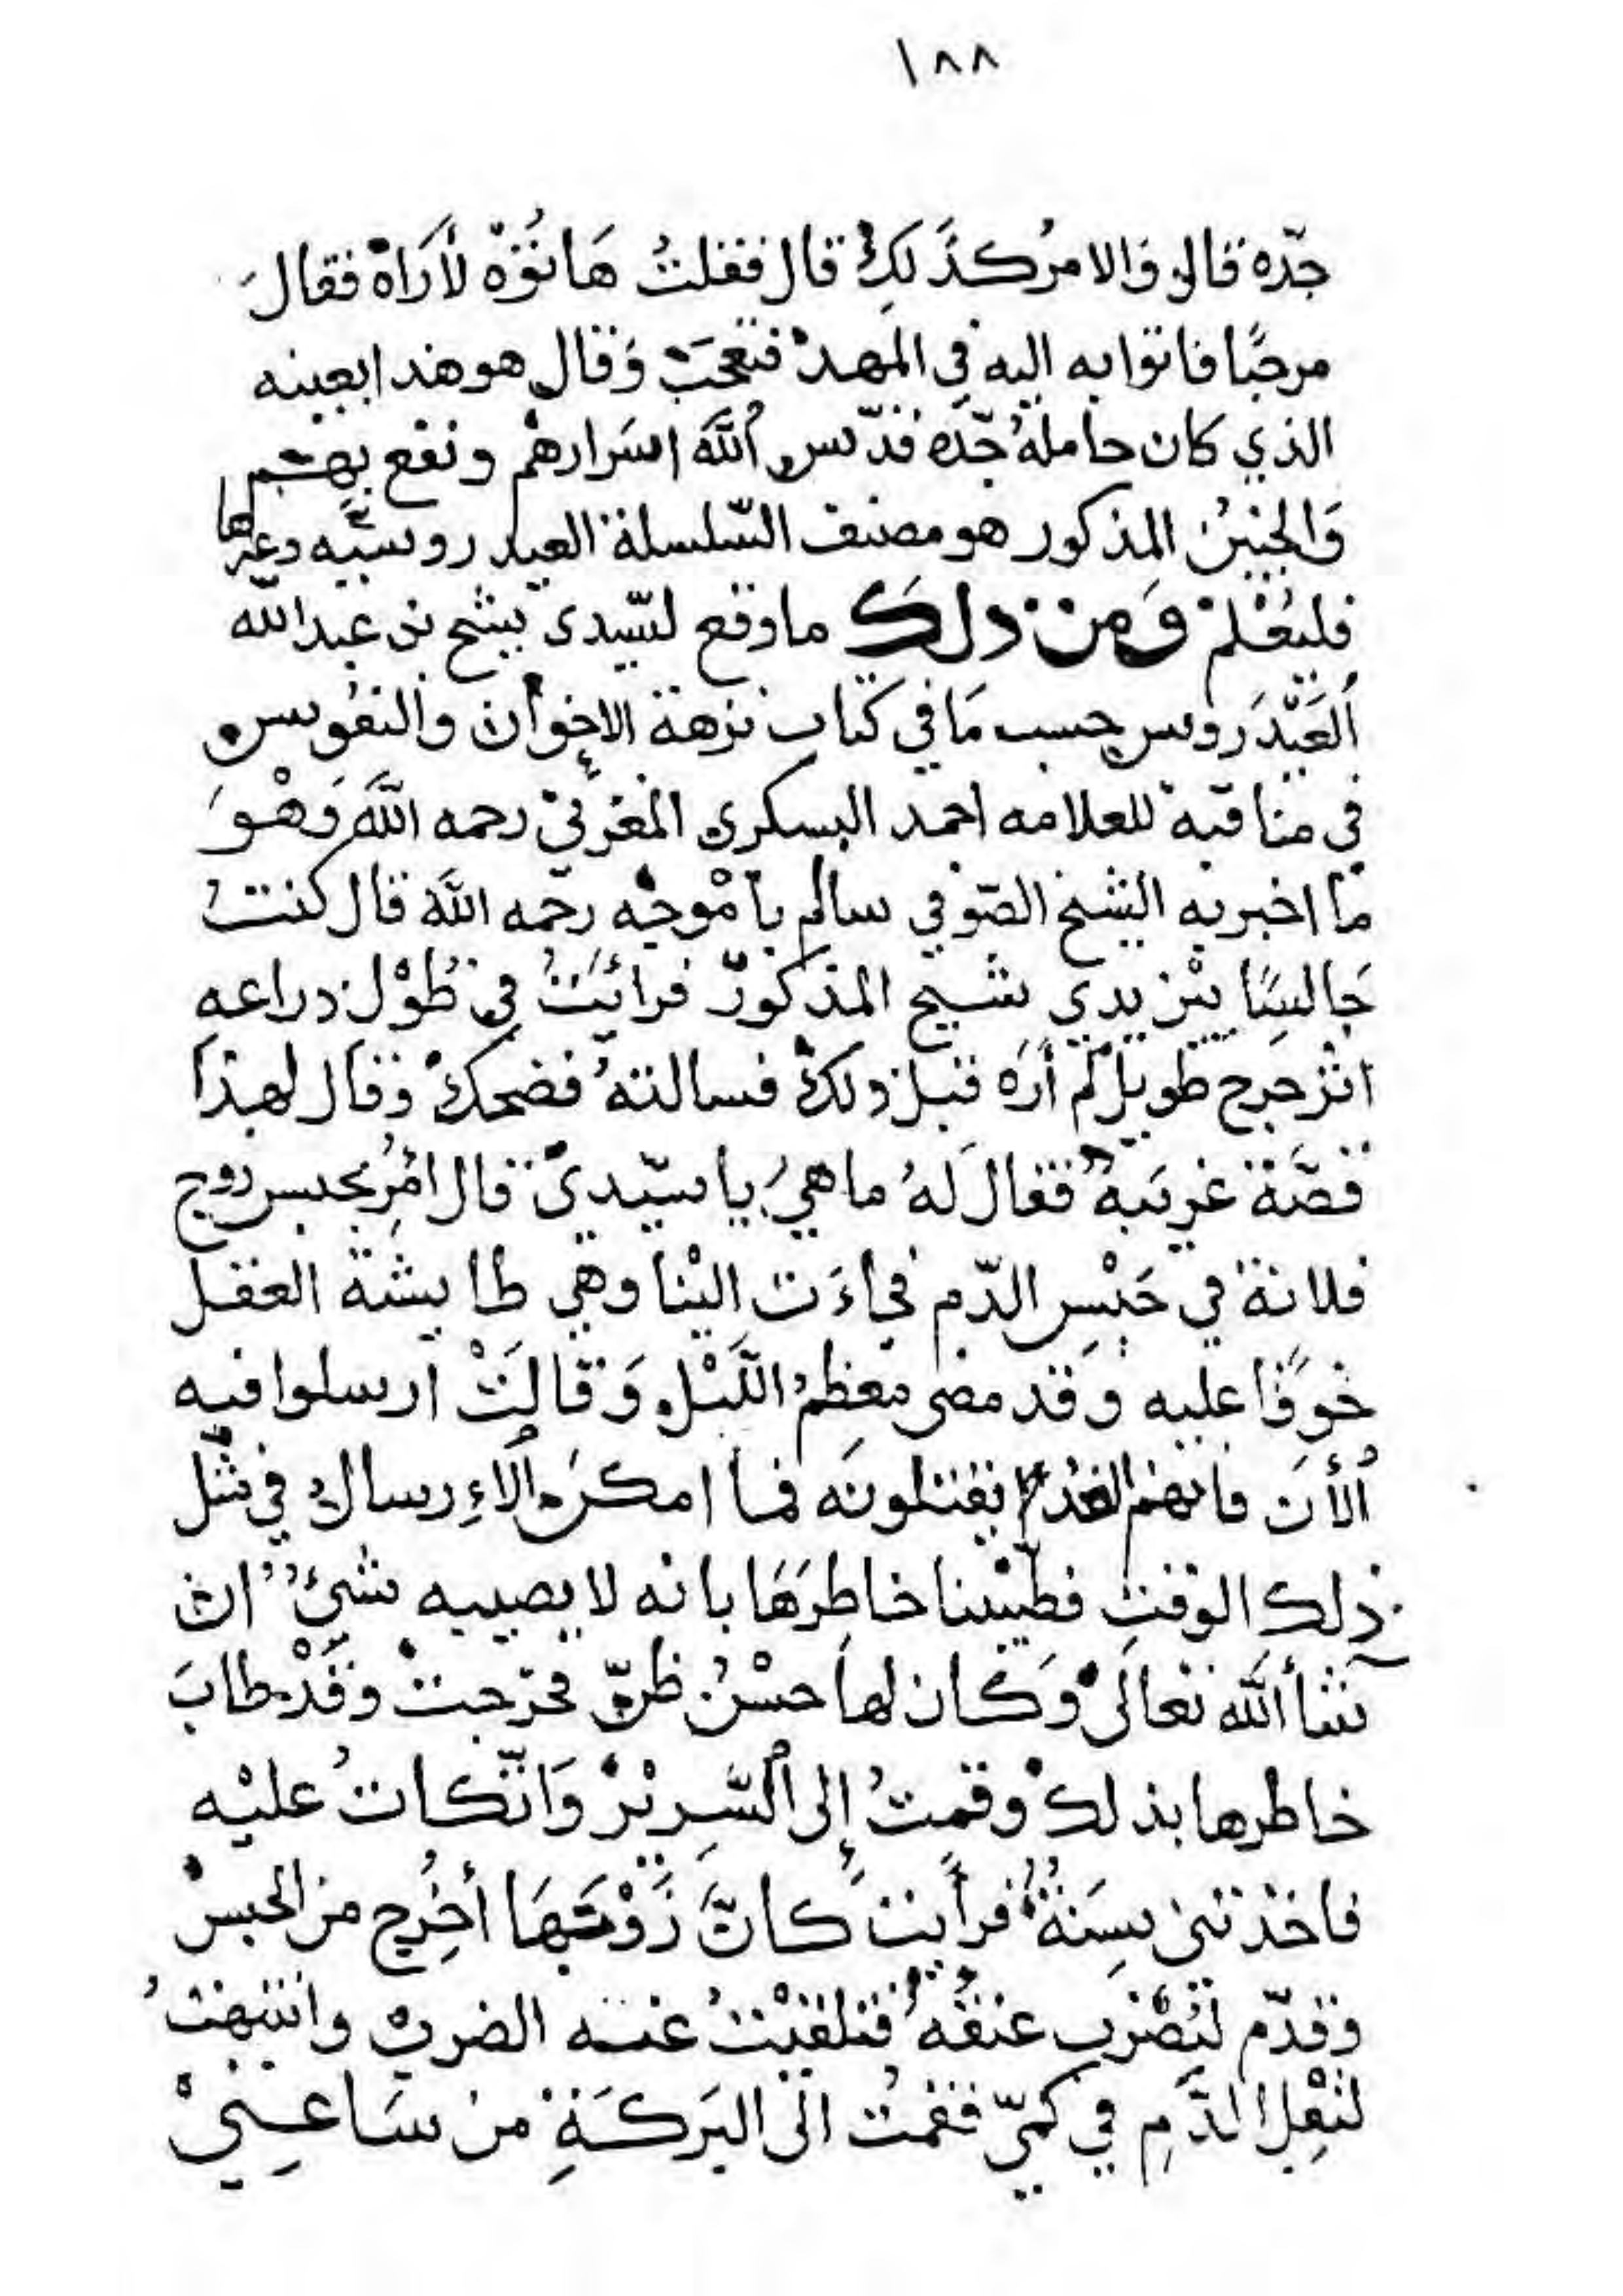 ١٨٨
جدّه قالوا والامرُ كذَلكْ قال فقلتُ هَاتُوْهْ لأَراهْ فقالَ
مرحبًا فاتوا به اليه في المهدْ فتعجبَ وَقال هو هذا بعينه
الذي كان حاملهُ جدّه قدّس اللّٰه اسَرارهم ونفع بهم
وَالجنينُ المذكور هو مصنف السّلسلة العيدروسيّه وغيرها
فليُعْلمْ وَمن ذلكَ ما وقع لسّيدي شيخ بن عبدالله
العَيْدَروس حسب مَا في كتاب نزهة الاخوان والنفوس
في مناقبه للعلامه احمد البسكري المغربيْ رحمه اللّٰه وَهْوَ
مَا اخبر به الشيخ الصّوفي سالم بامْوجه رحمه اللّٰه قال كنتُ
جَالسًا بيْن يدي شيخ المذكورْ فرائيَتُ في طُوْل ذراعهِ
اثر جرح طويل لم أرَه قبل ذلكْ فسالتهُ فضحكْ وقال لهذا
قصَّة غريَبةْ فقال لهُ ما هيَ يا سيّديْ قال أُمِرَ بحبس زوج
فلانة في حَبْسِ الدّم فجاءَت اليْنا وهي طايشة العقل
خوفًا عليه وقد مضى معظمُ اللّيْل وَقالَتْ ارسلوا فيه
اُلأنَ فانهم الغد يقتلونَه فما امكنَ الاءِرسال في مثل
ذلك الوقتِ فطيّبنا خاطِرَهَا بانه لا يصيبه شيءٌ ان
شأ اللّٰه تعالىْ وَكان لها حسْنُ ظنّ فخرجتْ وقدْ طابَ
خاطرها بذلكْ وقمتُ إلى السَّرِيْرْ وَاتّكاتُ عليْه
فاخذتني سِنَةٌ فرأيت كانَّ زَوْجَهَا أُخْرِج من الحبسْ
وقدّم لتُضْرب عنقُهُ فتلقيْتُ عنه الضربْ وانتبهتُ
لثِقْل الدَّمِ في كمّي فقمتُ الى البَركَةِ من سَاعِتيْ